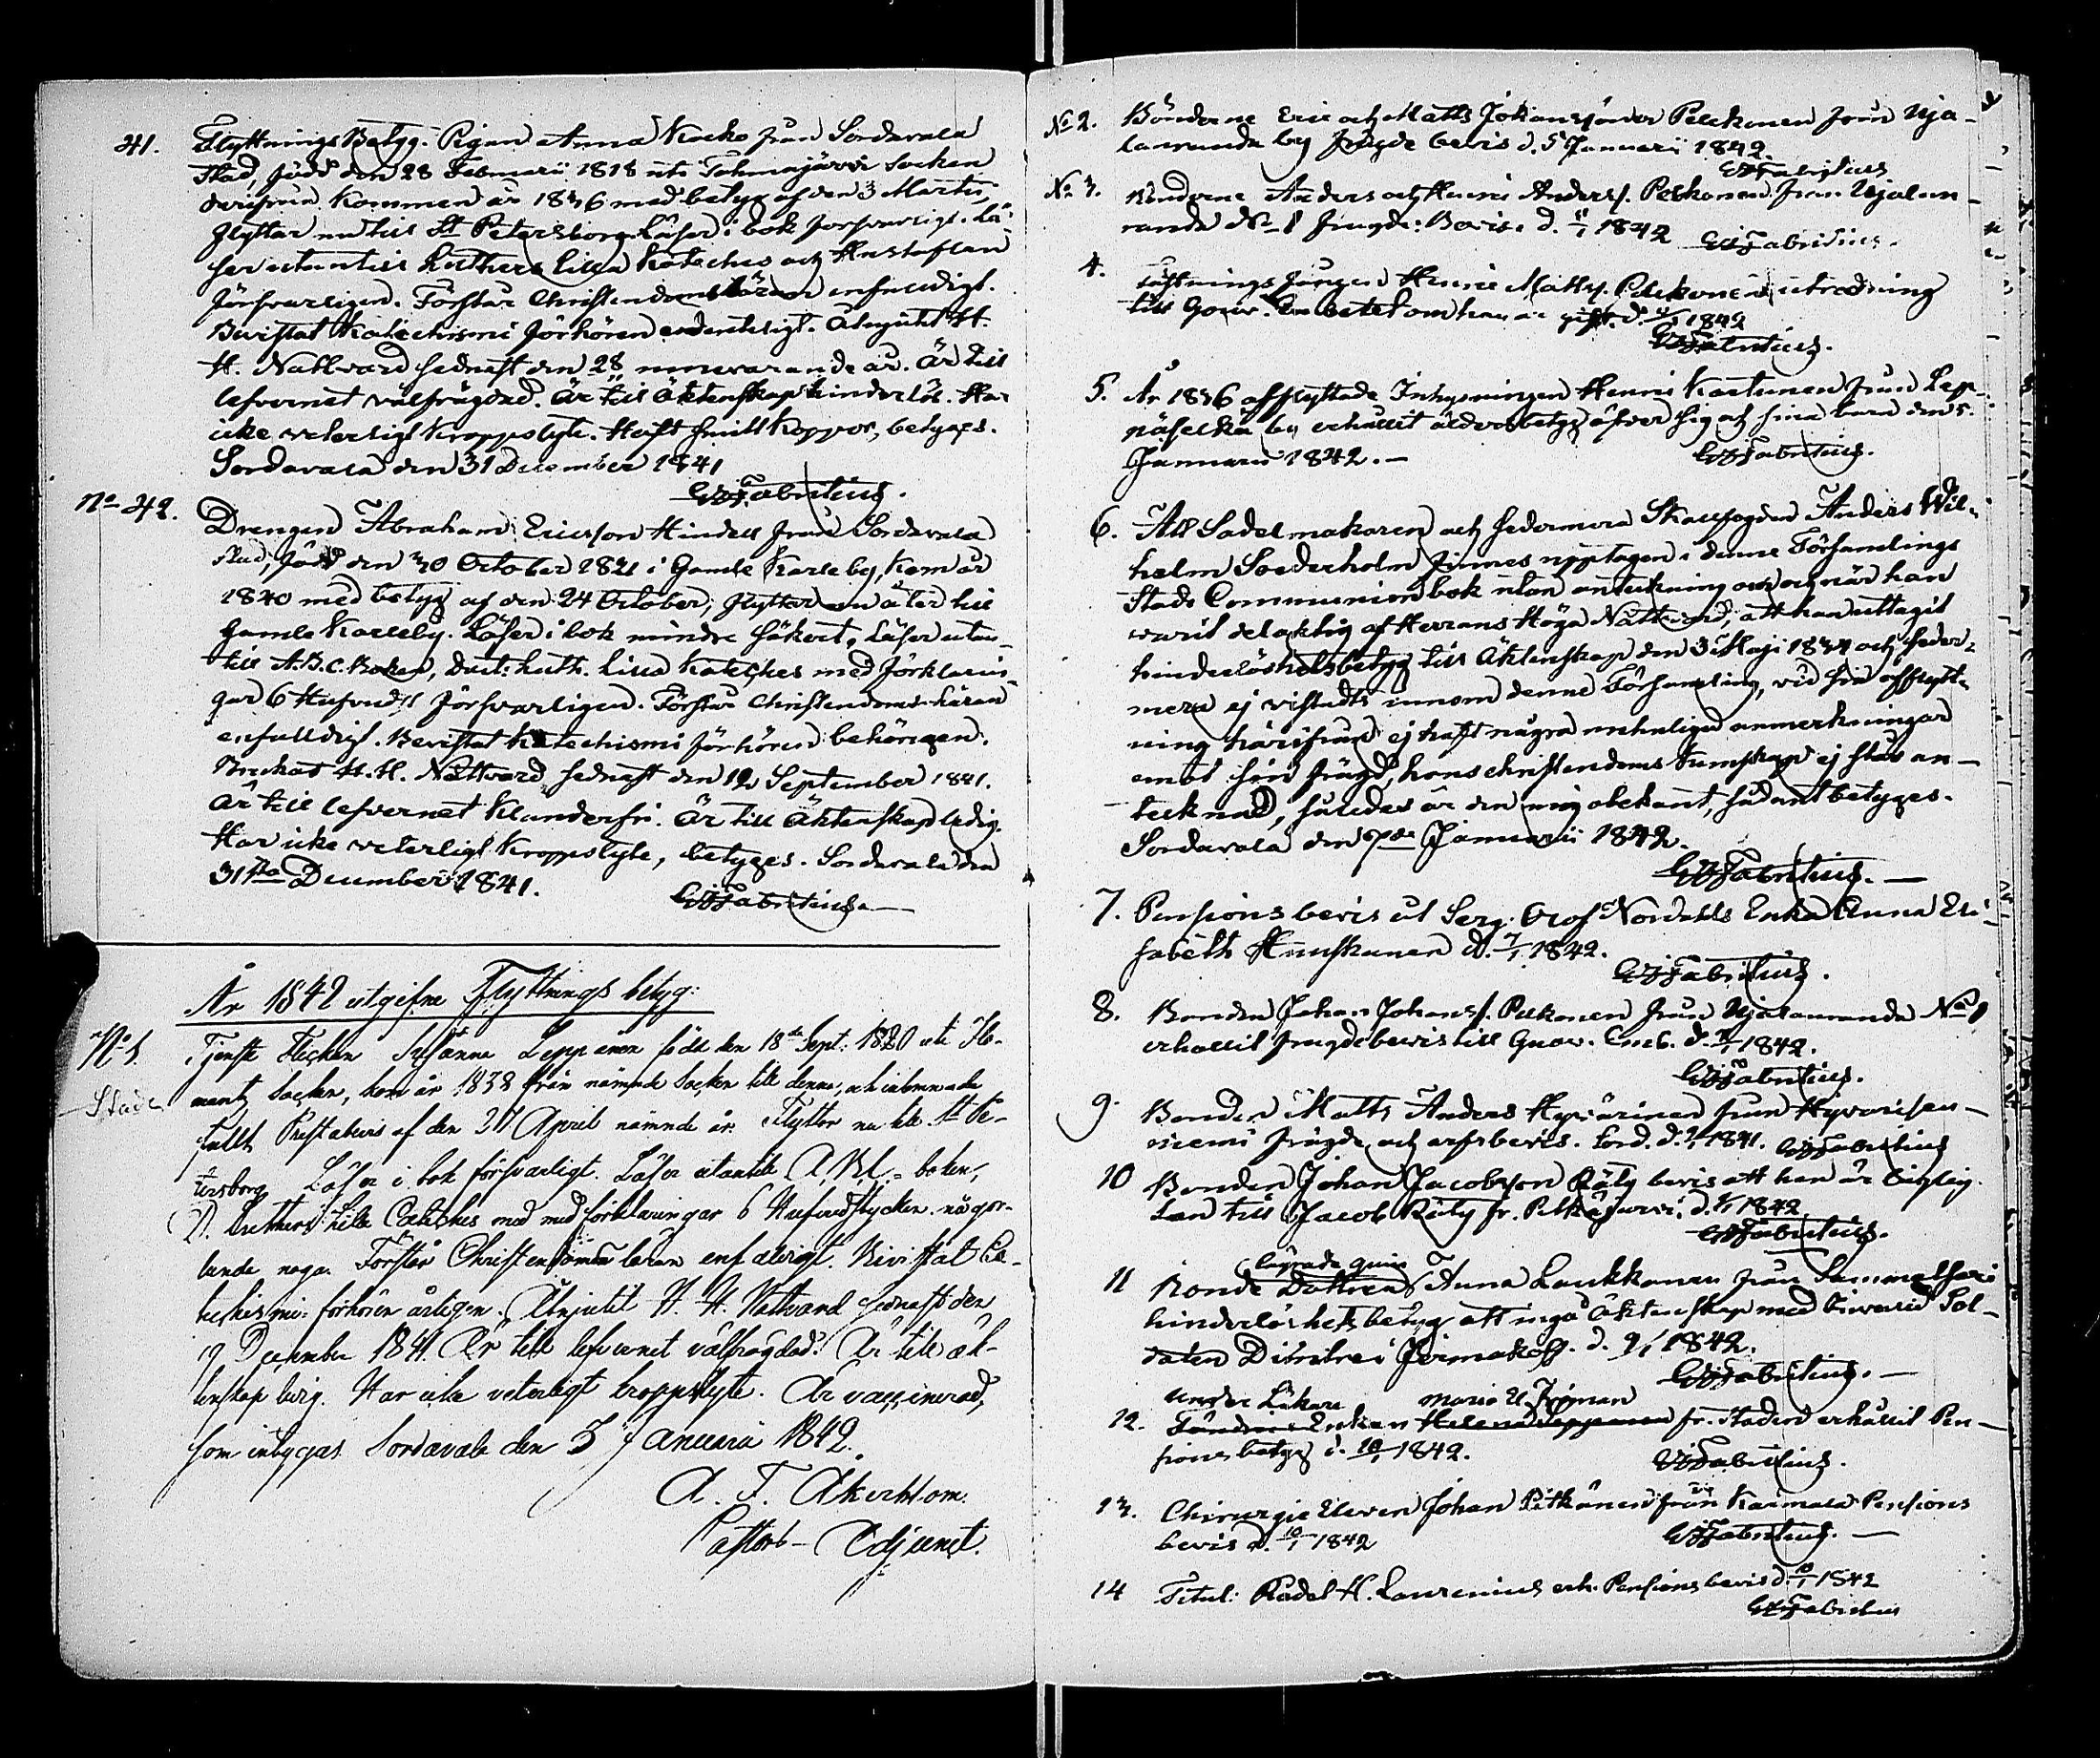 41. Flyttnings Betyg. Pigan Anna Kocko från Sordavala
Stad, född den 28 Februarii 1818 uti Tohmajärvi socken
derifrån kommen år 1836 med betyg af den 3 Martii,
flyttar nu till St Petersborg. Läser i bok försvarligt. Lä-
ser utantill Luthers lilla Kateches och Hustaflan
försvarligen. Förstår Christendomsläran enfaldigt.
Bevistat Katechismi förhören ordentligt. Åtnjutit H.
H. Nattvard sednast den 28 nuvarande år. Är till
lefvernet välfrägdad. Är till Äktenskap hinderlös. Har
icke veterligt kroppslyte. Haft Smittkoppor, betyges.
Sordavala den 31 December 1841
Fabritius.
No 42. Drengen Abraham Ericsson Hindell från Sordavala
stad, född den 30 October 1821 i Gamle Karleby, kom år
1840 med betyg af den 24 October, flyttar nu åter till
Gamle Karleby. Läser i bok mindre säkert, Läser utan-
till A.B.C. Boken, Luth. lilla Kateches med förklarin-
gar 6 Hufvudst försvarligen. Förstår Christendoms läran
enfaldigt. Bevistat Katechismi förhören behörigen.
Brukat H. H. Nattvard sednast den 12 September 1841.
Är till lefvernet klanderfri. Är till Äktenskap ledig.
Har icke veterligt kroppslyte, betyges. Sordavala den
31sta December 1841.
Fabritius.
År 1842 utgifne Flyttnings betyg:
No 1. Tjenste Flickan Susanna Leppänen född den 18de Sept: 1820 uti Ilo-
Stads
mantz Socken, kom år 1838 från nämnde Socken till denna, och inlemnade
Prestabevis af den 27 April nämnde år. Flyttar nu till St Pe-
tersborg Läser i bok försvarligt. Läser utantill A.B.C. boken,
D. Luthers Lilla Cateches med förklaringar 6 Hufvudstycken någor-
lunda noga. Förstår Christendoms läran enfaldigt. Bivistat Ca-
techismi förhören årligen. Åtnjutit H. H. Nattvard sednast den
19 December 1841. Är till lefvernet välfrägdad. Är till äk-
tenskap ledig. Har icke veterligt kroppslyte. Är vaccinerad,
som intygas Sordavala den 3 Januarii 1842.
A. F. Åkerblom.
Pastors-Adjunct.
No 2. Bönderne Eric och Matts Johanssöner Pelkonen från Uja-
lanranda by frägde bevis d. 5 Januarii 1842
Fabritius
No 3. Bönderne Anders och Henric Anderss. Pelkonen från Ujalan-
randa No 1 frägde: Bevis d. 1842 Fabritius.
4. Henric Matts. Pelkonen utredning
till Gouv. Embetet om han är gift. d. 1842
Fabritius.
5. År 1836 afflyttade Inhysningen Henric Kortunen från Lep-
näselkä by erhållit åldersbetyg öfver sig och sina barn den 5.
Januarii 1842.—
Fabritius.
6. Att Sadelmakaren och sedermera Skallfogden Anders Wil-
helm Soederholm finnes upptagen i denne Församlings
Stads Communionbok utan anteckning om och när han
warit delaktig af Herrans Höga Nattvard, att han uttagit
hinderlöshetsbetyg till Äktenskap den 3 Maji 1834 och seder-
mera ej vistadts innom denne Församling, vid sin afflytt-
ning härifrån ej haft några menliga anmerkningar
emot sin frägd, hans christendoms kunskap ej står an-
tecknad, således är den mig obekant, sådant betyges.
Sordavala den 7de Januarii 1842.
Fabritius.—
7. Pensions bevis åt Serg. Olof Nordahls Enka Anna Eli-
sabeth Huuskanen d. 7/1 1842.
Fabritius.
8. Bonden Johan Johanss. Pelkonen från Ujalanranda No 1
erhållit frägdebevis till Guov. Emb. d. 1842.
Fabritius.
9. Bonden Matts Anders Hyvärinen från Hyvärisen-
niemi frägde och arfsbevis. Sord. d. 1841. Fabritius
10 Bonden Johan Jacobsson Räty bevis att han är
Son till Jacob Räty fr. Pelkäjärvi. d. 1842
Fabritius.
lägrade qvin
11 Bonde Dottren Anna Laukkanen från
hinderlöshets betyg att ingå Äktenskap med Sol-
daten Dimitrei Jermakoff. d. 9/1 1842.
Fabritius.—
under Läkare Maria E.
12. Enkan Helena Leppänen fr. staden erhållit Pen-
sions betyg d. 10/1 1842.
Fabritius.
13. Chirurgie Eleven Johan Pitkänen från Pensions
bevis d. 10/1 1842 Fabritius.—
14 Titul: Rådet H. Laurenius erh. Pensions bevis d. 10/1 1842
Fabritius